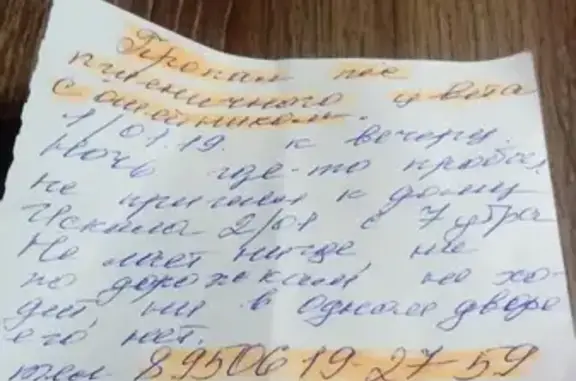 Пропал пес
пшеничного цвета
с ошейником.
1/01.19. к вечеру.
Ночь где-то пробыл
не пришел к дому
Искала 2/01 с 7 утра
Не лает нигде, ни
по дорожкам, не хо-
дит, ни в одном дворе
его нет.
тел. 8950619-27-59